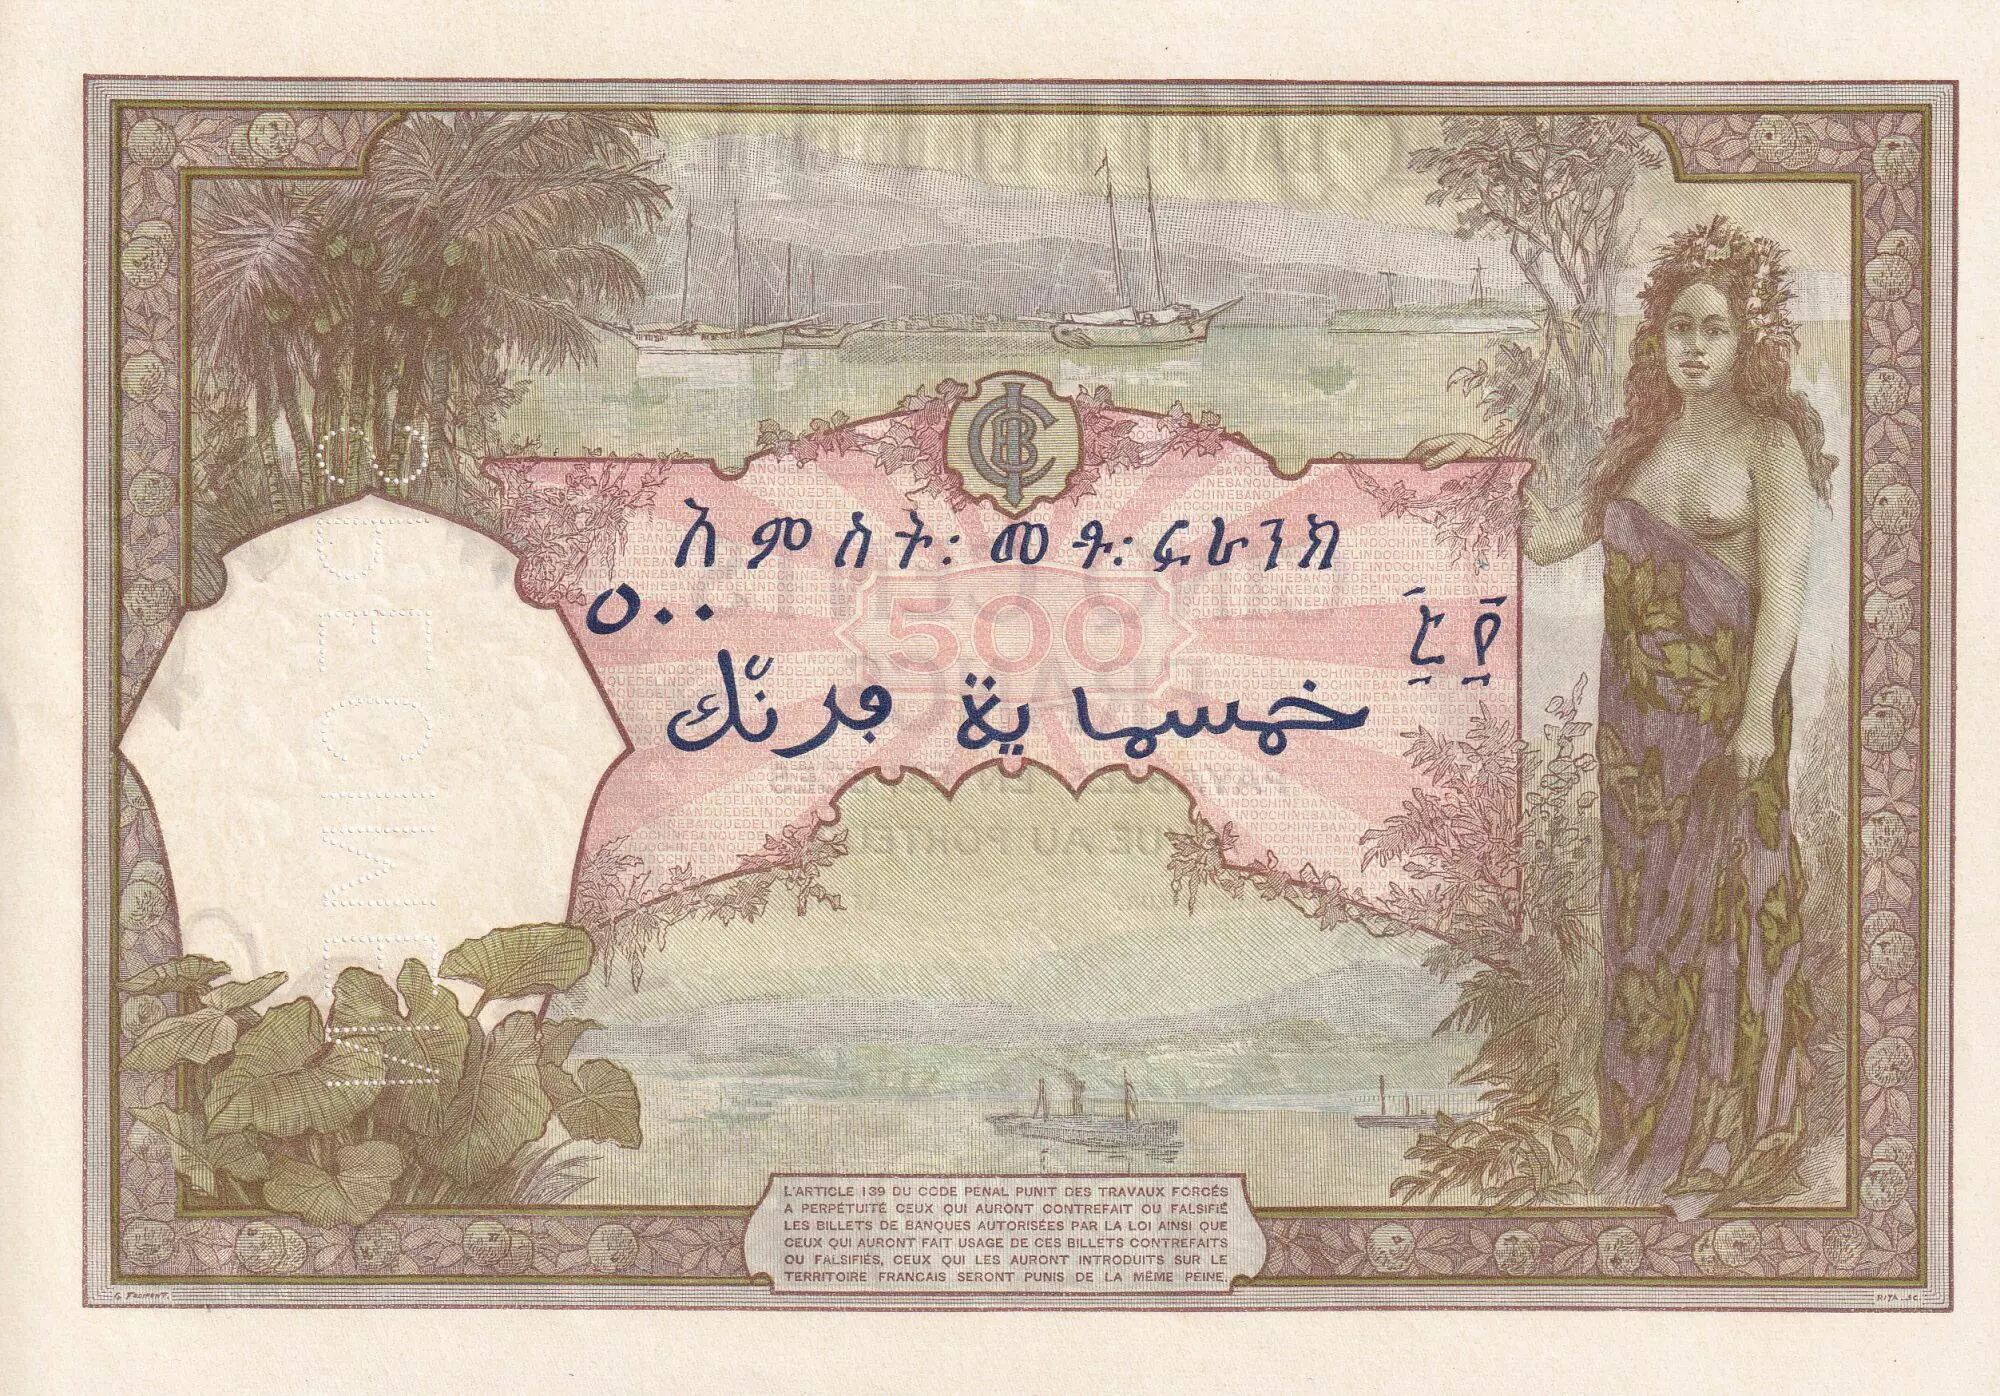 አምስት፡ መቶ፡ ፍራንክ
500
٥٠٠
፭፻
خمسماية فرنك
L'ARTICLE 139 DU CODE PENAL PUNIT DES TRAVAUX FORCÉS
A PERPÉTUITÉ CEUX QUI AURONT CONTREFAIT OU FALSIFIÉ
LES BILLETS DE BANQUES AUTORISÉES PAR LA LOI AINSI QUE
CEUX QUI AURONT FAIT USAGE DE CES BILLETS CONTREFAITS
OU FALSIFIÉS, CEUX QUI LES AURONT INTRODUITS SUR LE
TERRITOIRE FRANCAIS SERONT PUNIS DE LA MÊME PEINE.
RITA_SC.
SPECIMEN